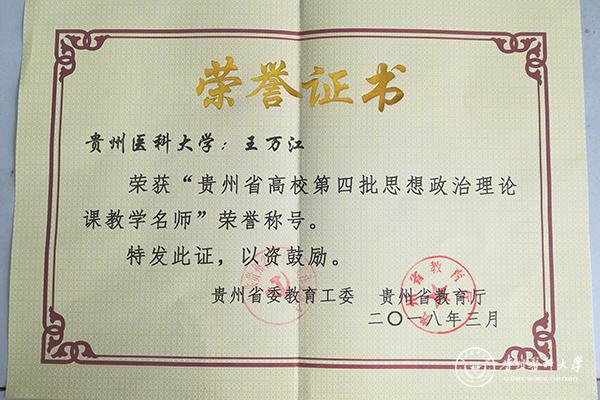 荣誉证书
贵州医科大学：王万江
荣获“贵州省高校第四批思想政治理论
课教学名师”荣誉称号。
特发此证，以资鼓励。
贵州省委教育工委 贵州省教育厅
二〇一八年三月
贵州省教育厅
贵州医科大学